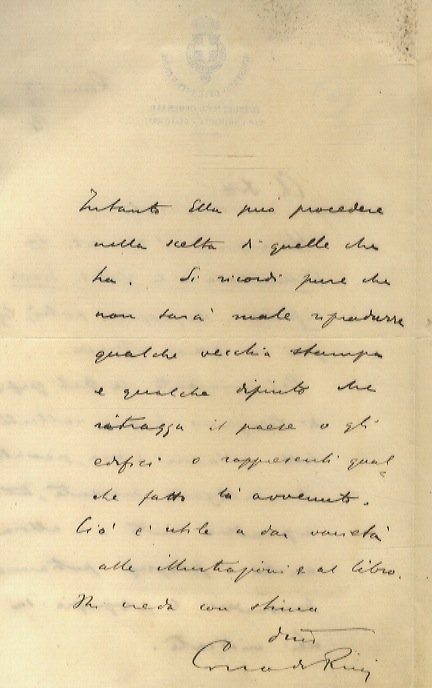 Intanto Ella può procedere
nella scelta di quelle che
ha. Si ricordi pure che
non sarà male riprodurre
qualche vecchia stampa
e qualche dipinto che
ritragga il paese o gli
edifici o rappresenti qual-
che fatto là avvenuto.
Ciò è utile a dar varietà
alle illustrazioni e al libro.
Mi creda con stima
dmo
Corrado Ricci